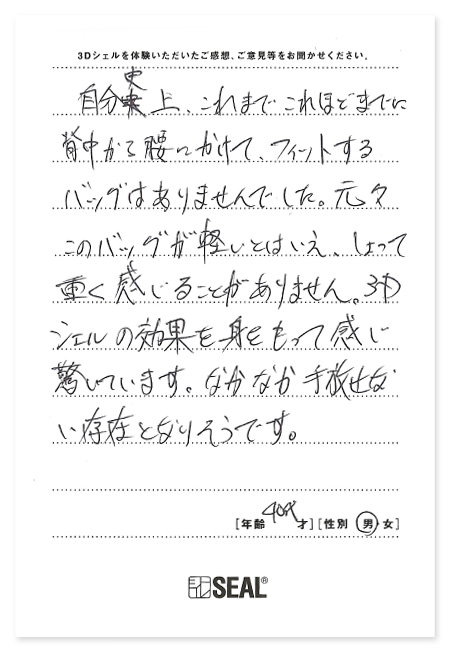 3Dシェルを体験いただいたご感想、ご意見等をお聞かせください。
自分史上、これまでこれほどまでに
背中から腰にかけて、フィットする
バッグはありませんでした。元々
このバッグが軽いとはいえ、しょって
重く感じることがありません。3D
シェルの効果を身をもって感じ
驚いています。なかなか手放せな
い存在となりそうです。
[年齢 40代 才][性別 男・女]
SEAL®